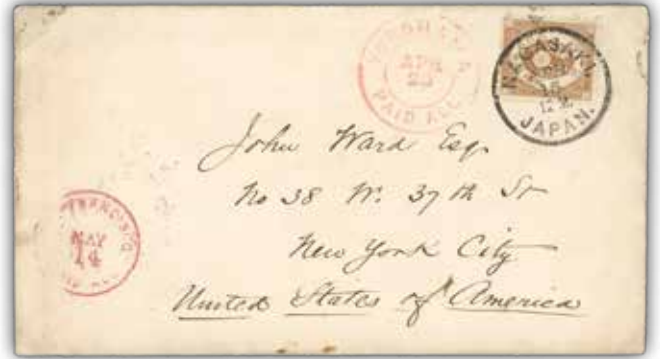 YOKOHAMA
APR
23
PAID ALL
NAGASAKI
JAPAN.
John Ward Esq.
No 38 W. 37th St
New York City
United States of America
FRANCISCO
MAY
14